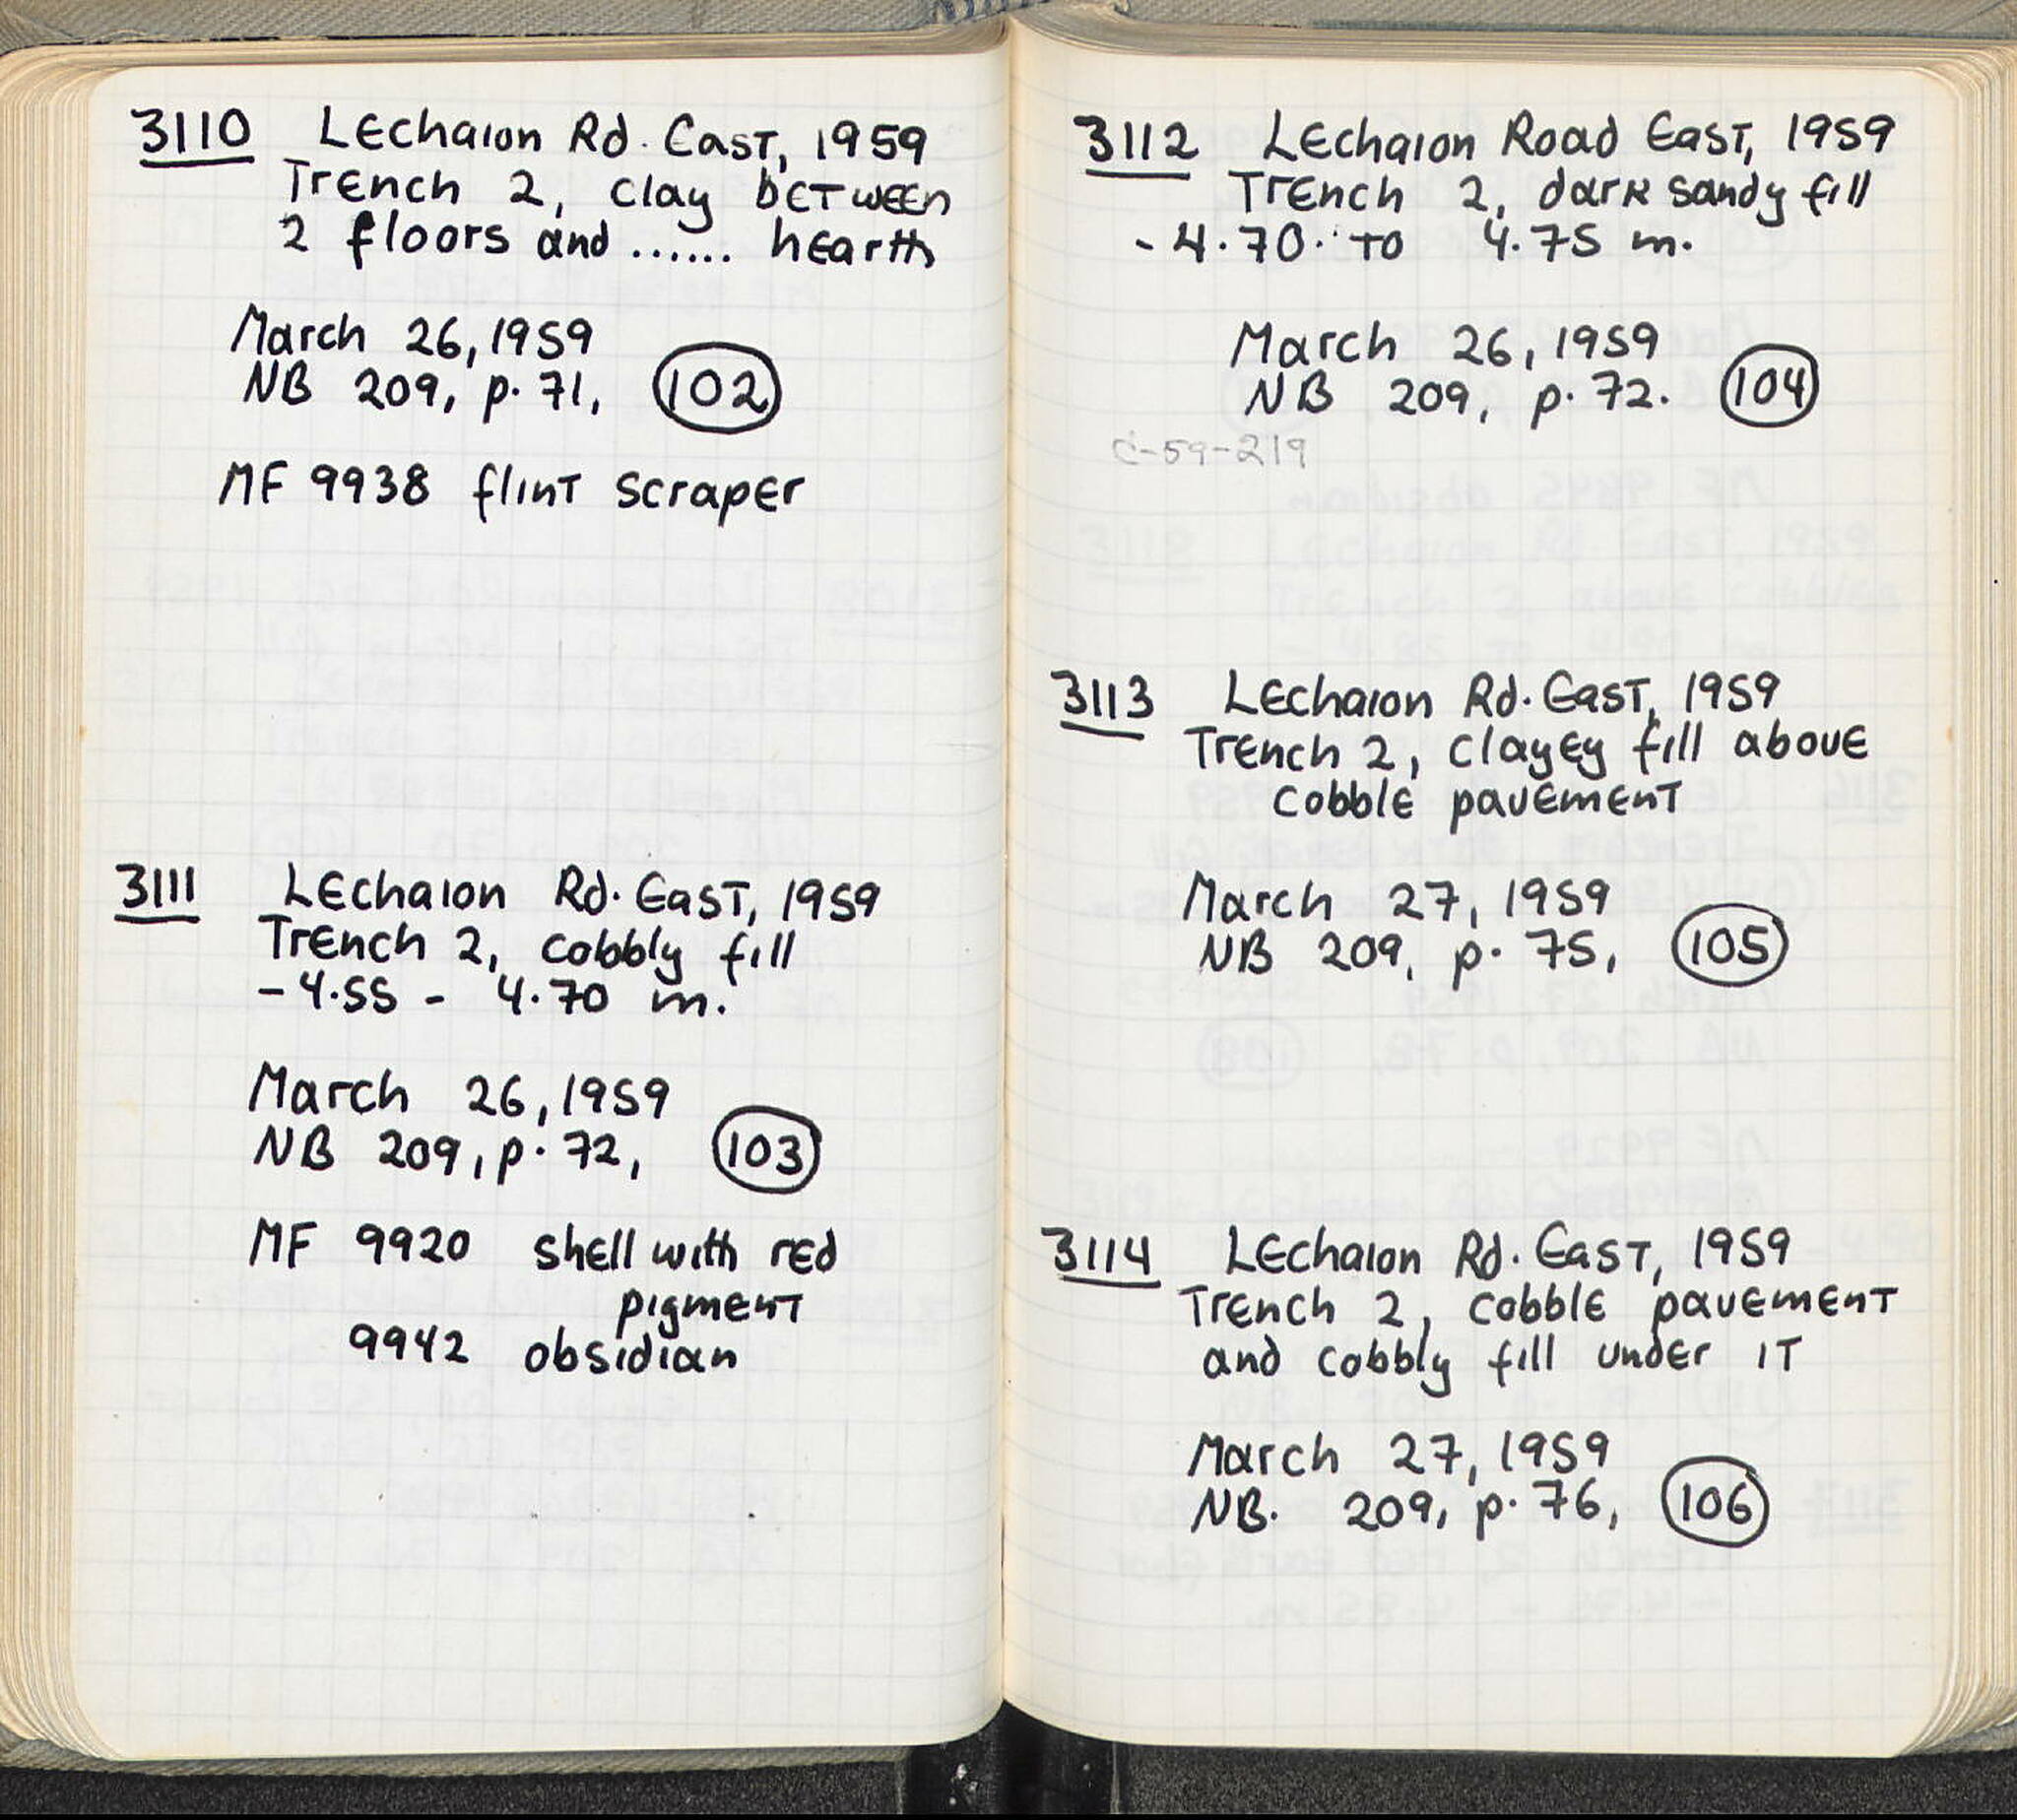 3110 Lechaion Rd. East, 1959
Trench 2, clay between
2 floors and ...... hearth
March 26, 1959
NB 209, p. 71, 102
MF 9938 flint scraper
3111 Lechaion Rd. East, 1959
Trench 2, cobbly fill
- 4.55 - 4.70 m.
March 26, 1959
NB 209, p. 72, 103
MF 9920 shell with red
pigment
9942 obsidian
3112 Lechaion Road East, 1959
Trench 2, dark sandy fill
- 4.70. to 4.75 m.
March 26, 1959
NB 209, p. 72. 104
C-59-219
3113 Lechaion Rd. East, 1959
Trench 2, clayey fill above
cobble pavement
March 27, 1959
NB 209, p. 75, 105
3114 Lechaion Rd. East, 1959
Trench 2, cobble pavement
and cobbly fill under it
March 27, 1959
NB. 209, p. 76, 106